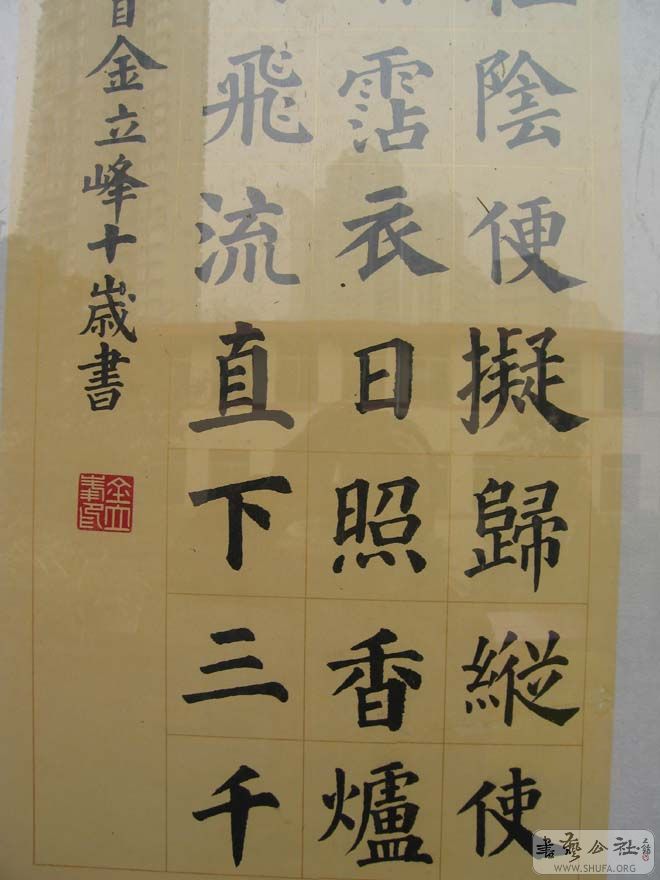 陰便擬歸縦使
霑衣日照香爐
飛流直下三千
首金立峰十歲書
書藝公社
WWW.SHUFA.ORG